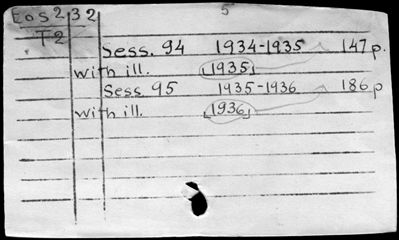 5
Eos 2132
T2
Sess. 94 1934-1935 147 p.
with ill. [1935]
Sess 95 1935-1936 186 p
with ill. [1936]